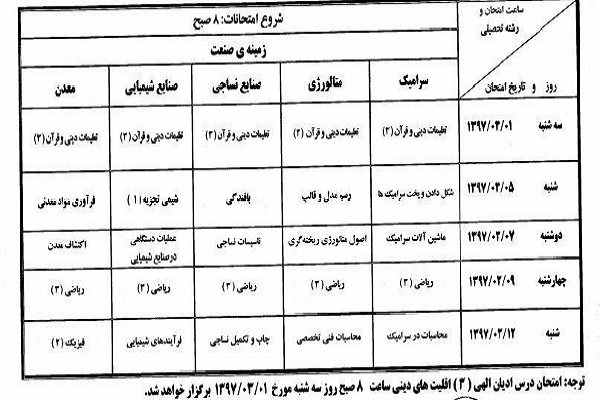 ساعت امتحان و رشته تحصیلی
شروع امتحانات: ۸ صبح
زمینه ی صنعت
روز و تاریخ امتحان
سرامیک متالورژی صنایع نساجی صنایع شیمیایی معدن
سه شنبه ۱۳۹۷/۰۳/۰۱ تعلیمات دینی و قرآن (۳) تعلیمات دینی و قرآن (۳) تعلیمات دینی و قرآن (۳) تعلیمات دینی و قرآن (۳) تعلیمات دینی و قرآن (۳)
شنبه ۱۳۹۷/۰۳/۰۵ شکل دادن و پخت سرامیک ها رسم مدل و قالب بافندگی شیمی تجزیه (۱) فرآوری مواد معدنی
دوشنبه ۱۳۹۷/۰۳/۰۷ ماشین آلات سرامیک اصول متالورژی ریخته‌گری تاسیسات نساجی عملیات دستگاهی در صنایع شیمیایی اکتشاف معدن
چهارشنبه ۱۳۹۷/۰۳/۰۹ ریاضی (۳) ریاضی (۳) ریاضی (۳) ریاضی (۳) ریاضی (۳)
شنبه ۱۳۹۷/۰۳/۱۲ محاسبات در سرامیک محاسبات فنی تخصصی چاپ و تکمیل نساجی فرآیندهای شیمیایی فیزیک (۲)
توجه: امتحان درس ادیان الهی (۳) اقلیت های دینی ساعت ۸ صبح روز سه شنبه مورخ ۱۳۹۷/۰۳/۰۱ برگزار خواهد شد.